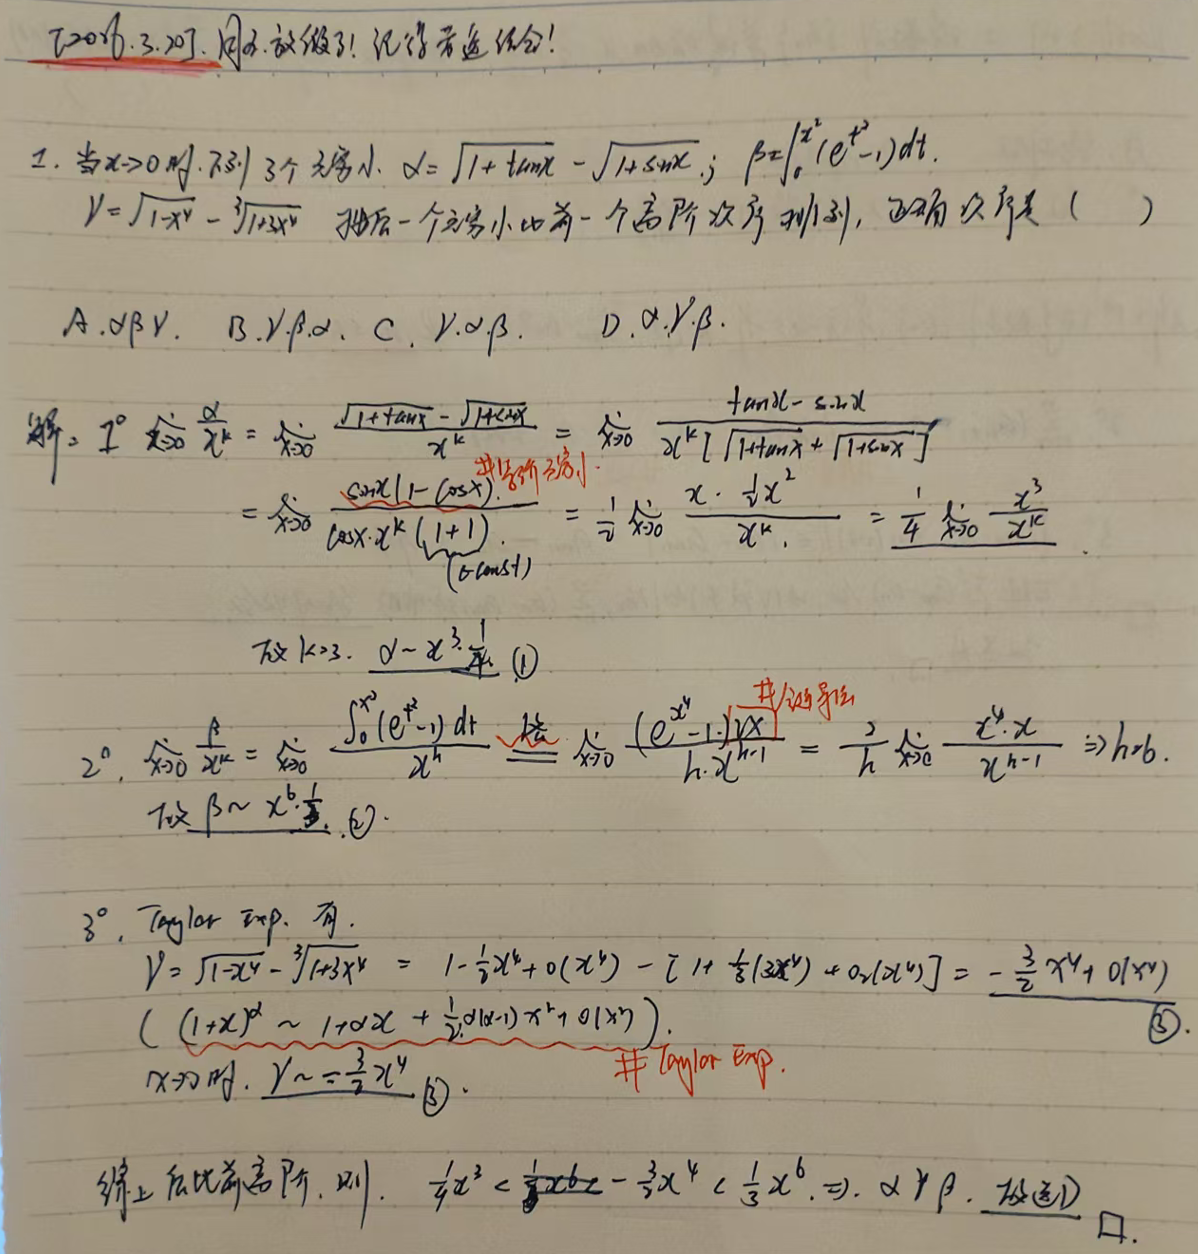 [2026.3.20]. 同济放假了! 记得看连续会!
1. 当x→0时.下列3个无穷小. α=√(1+tanx) - √(1+sinx).; β=∫₀^{x²}(e^{t²}-1)dt.
γ=√(1-x⁴) - ∛(1+3x⁴) 按后一个无穷小比前一个高阶次序排列, 正确次序是 ( )
A.αβγ. B.γ.β.α. C. γ.α.β. D.α.γ.β.
解: 1° lim_{x→0} α/x^k = lim_{x→0} (√(1+tanx) - √(1+sinx))/x^k = lim_{x→0} (tanx - sinx)/(x^k[√(1+tanx) + √(1+sinx)])
#等价无穷小.
= lim_{x→0} sinx(1-cosx)/(cosx·x^k(1+1)) = 1/2 lim_{x→0} (x·½x²)/x^k. = 1/4 lim_{x→0} x³/x^k.
(const)
故k=3. α~x³·1/4 ①
#求导法
2°. lim_{x→0} β/x^k = lim_{x→0} ∫₀^{x²}(e^{t²}-1)dt/x^n = lim_{x→0} (e^{x⁴}-1)·2x/(n·x^{n-1}) = 2/n lim_{x→0} x⁴·x/x^{n-1} ⇒n=6.
故 β~x⁶·1/3. ②.
3°. Taylor Exp. 有.
γ=√(1-x⁴) - ∛(1+3x⁴) = 1-½x⁴+o(x⁴) - [1+⅓(3x⁴)+o₂(x⁴)] = -3/2x⁴+o(x⁴)
③.
( (1+x)^α ~ 1+αx+1/2!α(α-1)x²+o(x²) ).
#Taylor Exp.
x→0时. γ~-3/2x⁴ ③.
综上后比前高阶.则. ¼x³ < -3/2x⁴ < ⅓x⁶.⇒. αγβ. 故选D □.